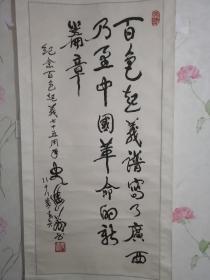 百色起义谱写了廣西
乃至中國革命的新
篇章
纪念百色起义七十五周年